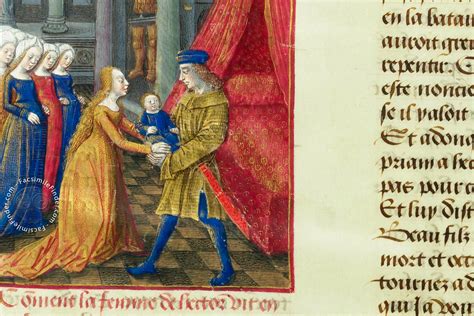 Cõment la femme de hector vit en
en la batai
auroit grea
repentir. C
este noncie
se il yaloit
Et adonq
priam a hect
pas pour c
Et luy dist
Beau filz
mort et occi
tournez a
qui la vou
FacsimileFinder.com